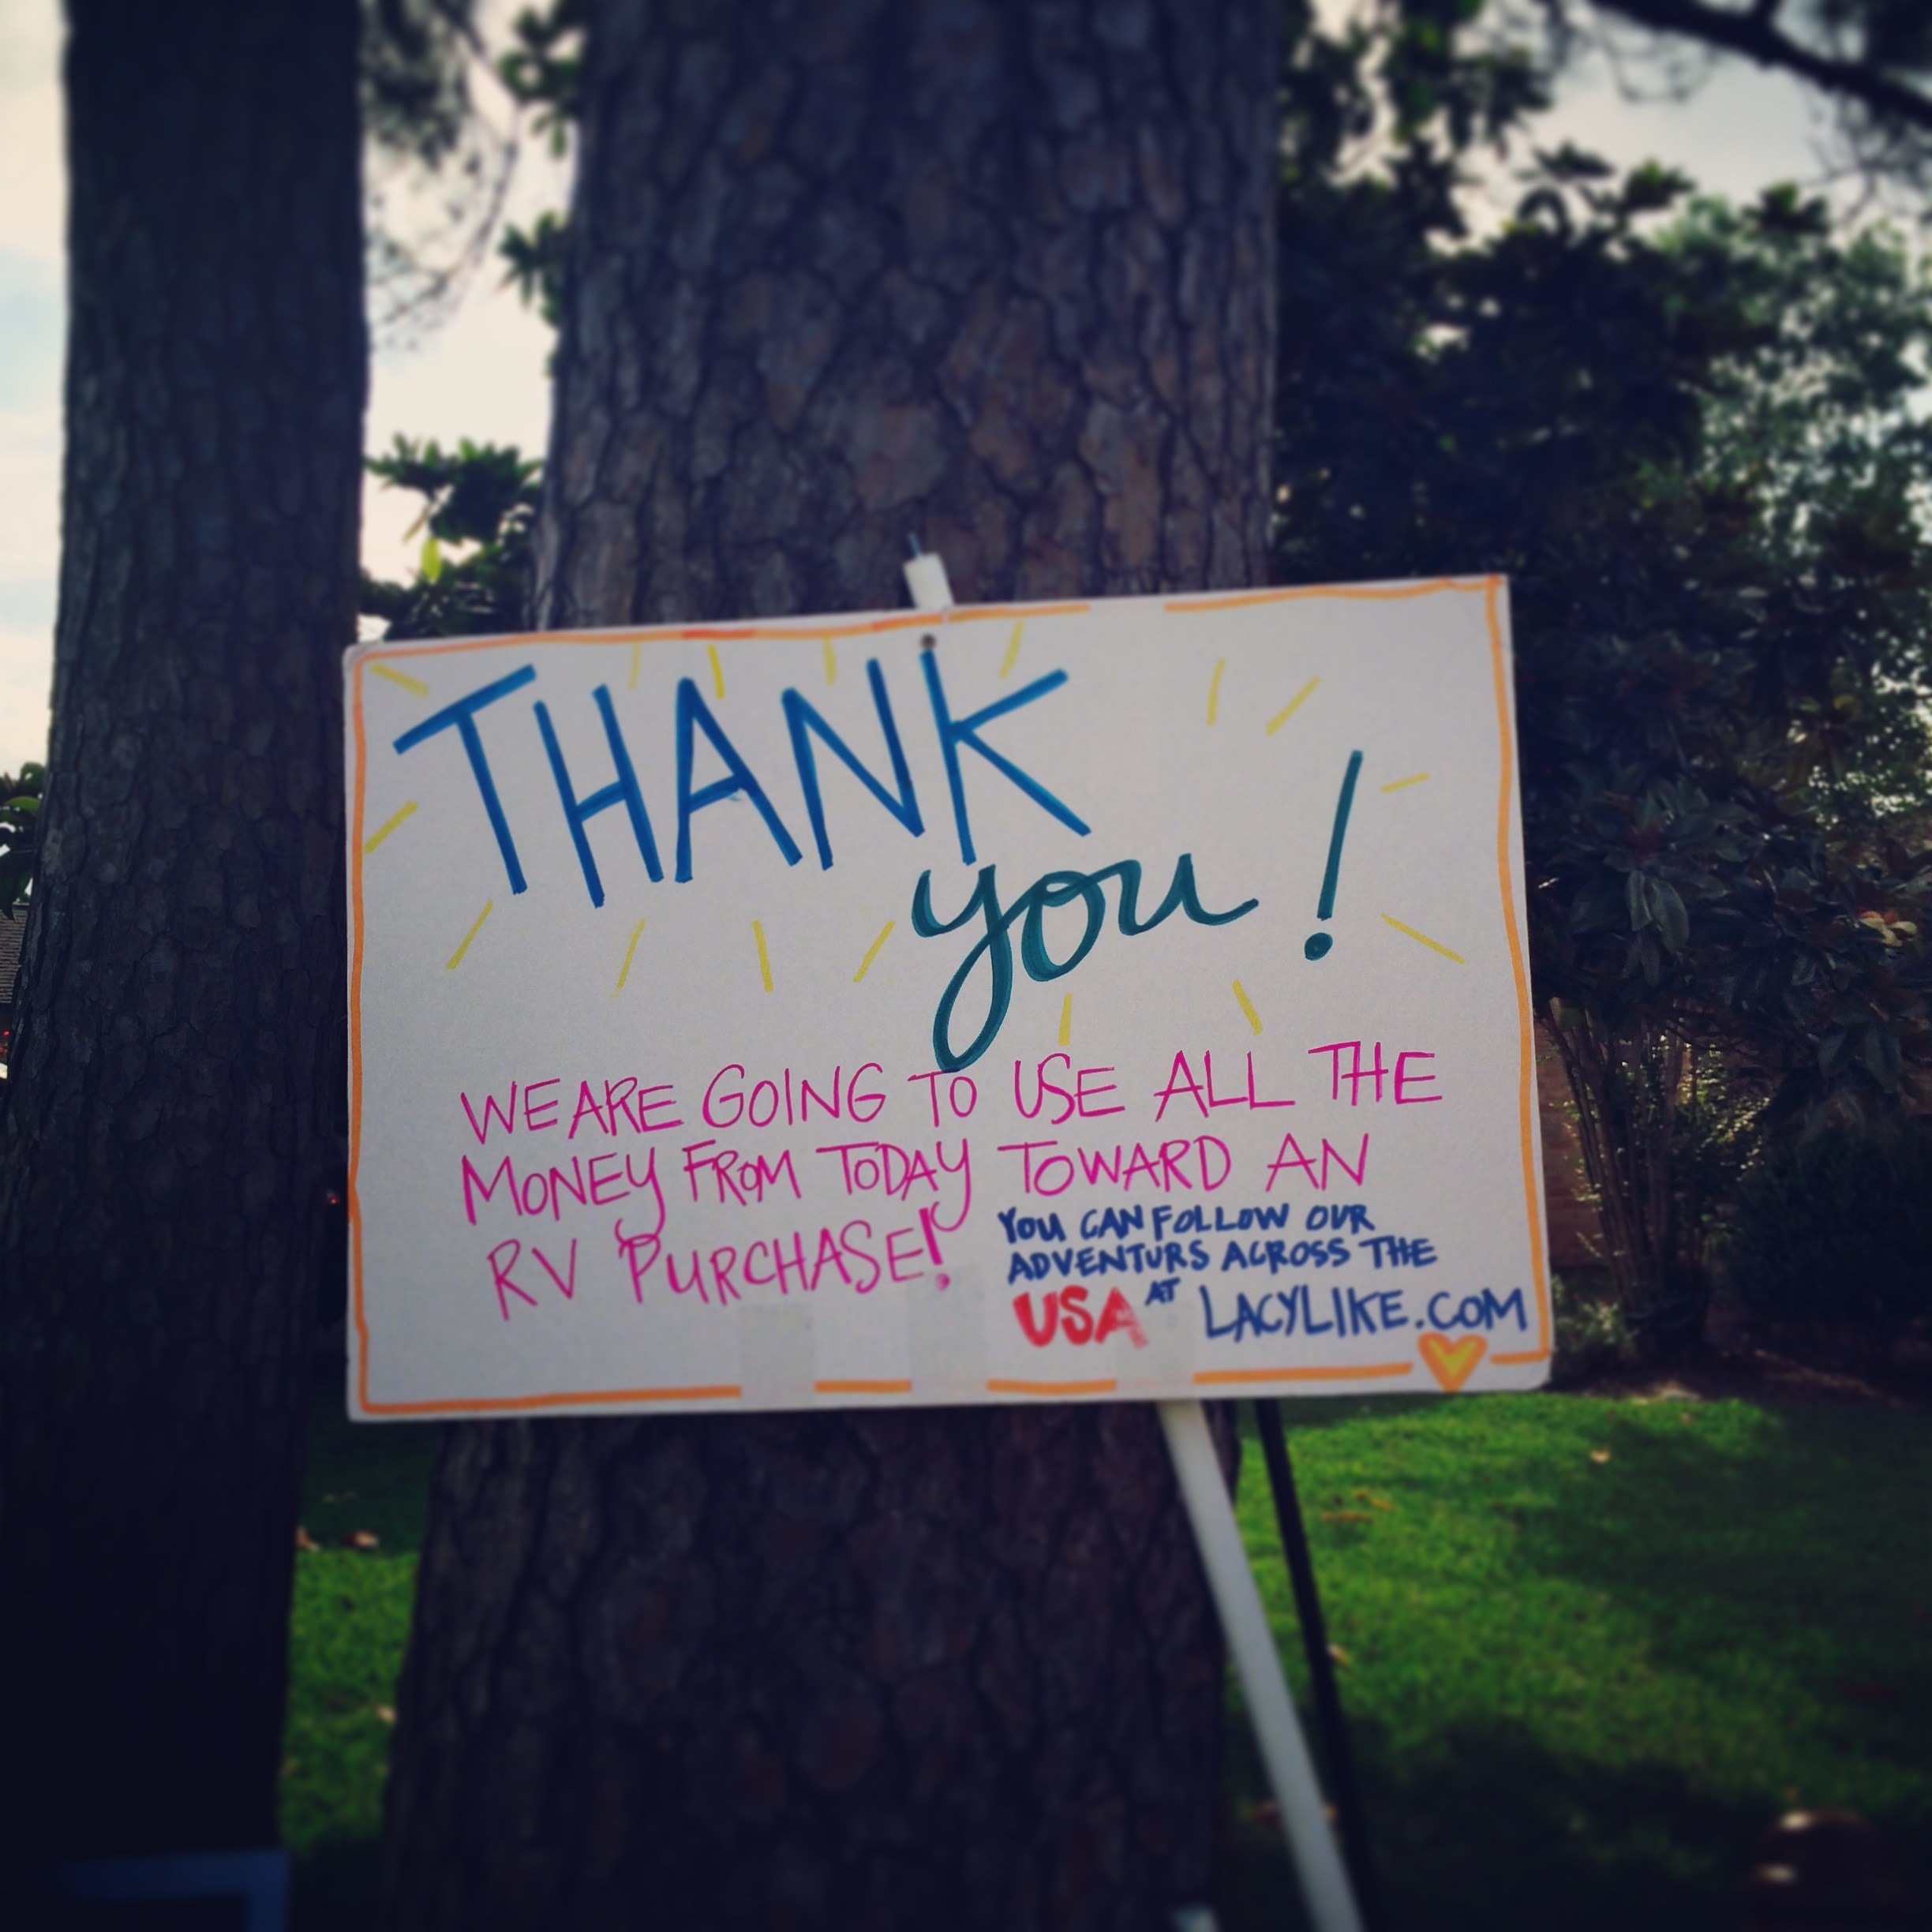 THANK
you!
WE ARE GOING TO USE ALL THE
MONEY FROM TODAY TOWARD AN
RV PURCHASE!
YOU CAN FOLLOW OUR
ADVENTURS ACROSS THE
USA AT LACYLIKE.COM